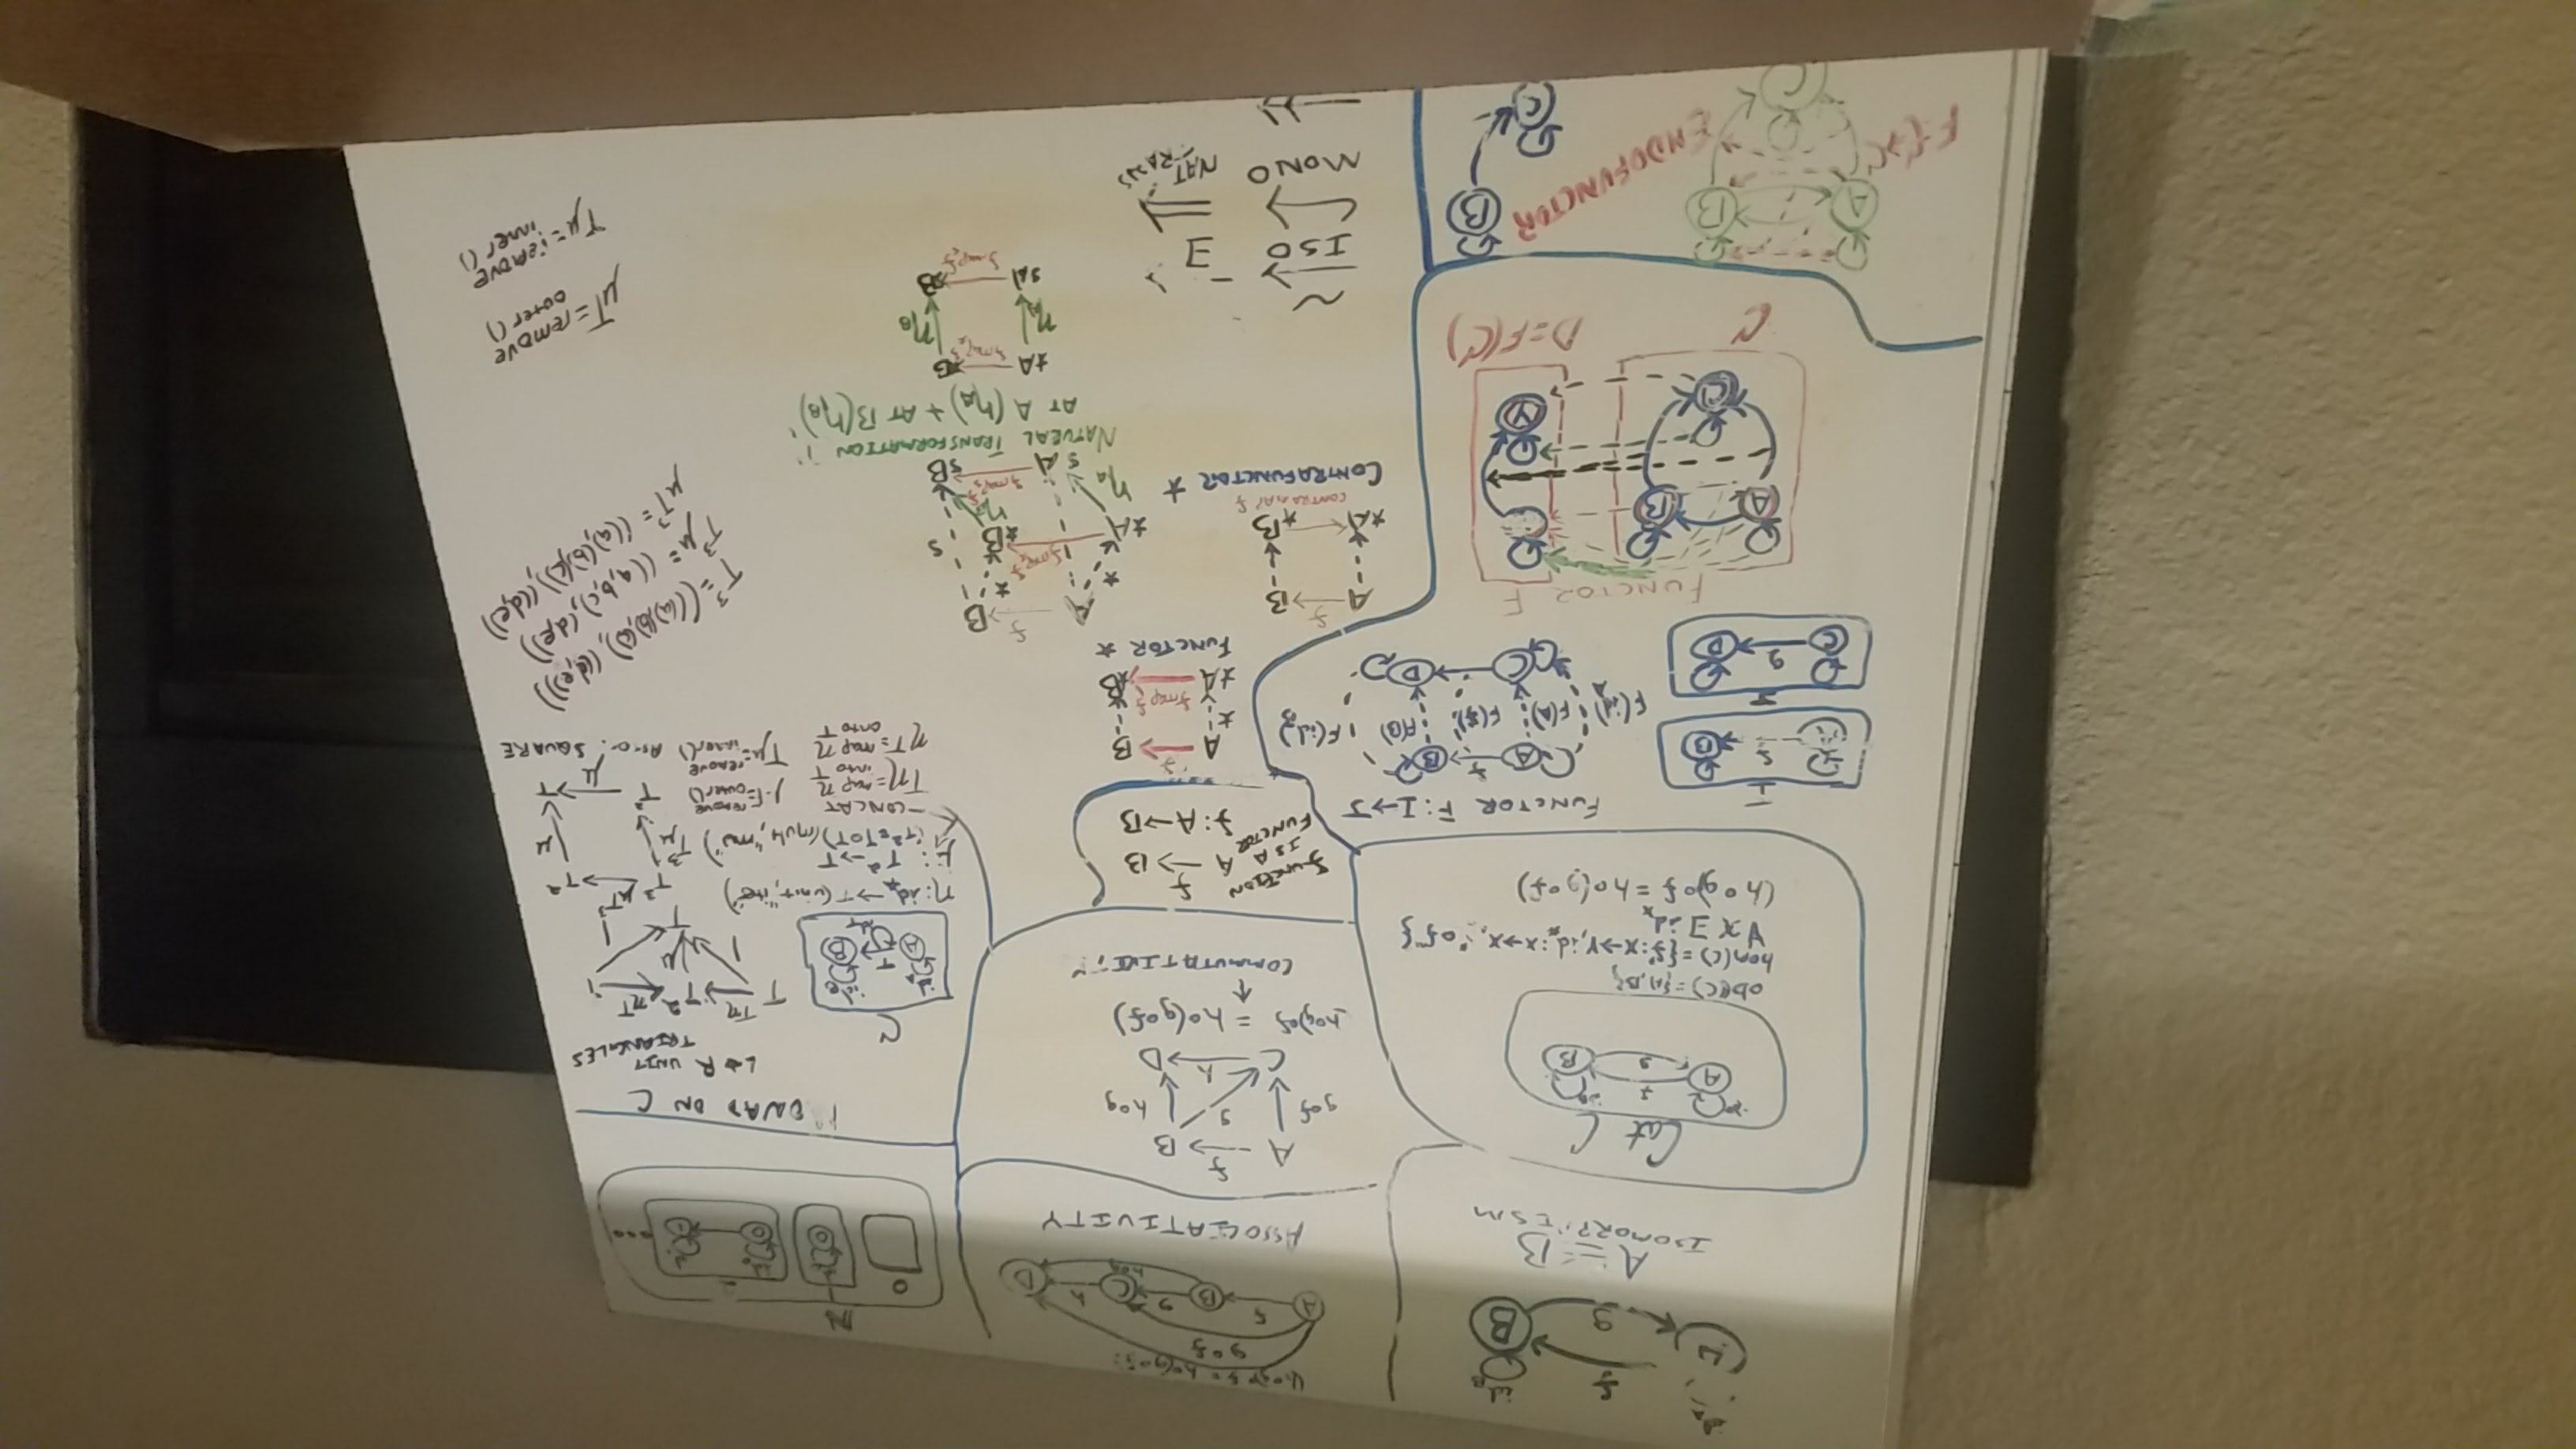 f
id_B
g
B
A ≅ B
ISOMORPHISM
g∘f
A f B g C h D
h∘g
ASSOCIATIVITY
N
0
Cat C
A f B
g
ob(C)={A,B}
hom(C)={f:X→Y,id_x:X→X,"∘f"}
∀X∃id_x
(h∘g)∘f=h∘(g∘f)
A f B
g∘f g h∘g
C h D
h∘g)∘f = h∘(g∘f)
↑
COMMUTATIVITY
MONAD ON C
L+R UNIT
TRIANGLES
C
T Tη T² ηT
μ
T
η:id_x→T(unit,
μ: T²→T
(T²=T∘T)(mult,"mu")
-CONCAT
Tη=map η
into T
ηT=map η
onto T
remove
outer()
Tμ=remove
inner()
T³ μT³ T²
T³μ μ
T² → T
μ
SQUARE
FUNCTION
IS A
FUNCTOR
A f→ B
f:A→B
I
f B
C g D
FUNCTOR F:I→J
A f B
F(id)_A F(A) F(f) F(B) F(id)_B
C D
A f B
*
fmap f
*A *B
FUNCTOR *
FUNCTOR F
A B
C
Y
C
D=F(C)
A f B
*A *B
CONTRAMAP f
CONTRAFUNCTOR *
A f B
* * s
*A fmap f *B
η_A η_B
sA fmap f sB
NATURAL TRANSFORMATION
AT A(η_A) + AT B(η_B)
*A
fmap f
η_A η_B
sA B
fmap f
T³=(((a)(b)(c)),((d,e)))
T³μ=((a,b,c),(d,e))
μT³=((a),(b)(c)),((d,e))
μT=remove
outer()
Tμ=remove
inner()
~
ISO
∃
MONO
NAT
TRANS
A B
F:C→C
ENDOFUNCTOR
C
B
C